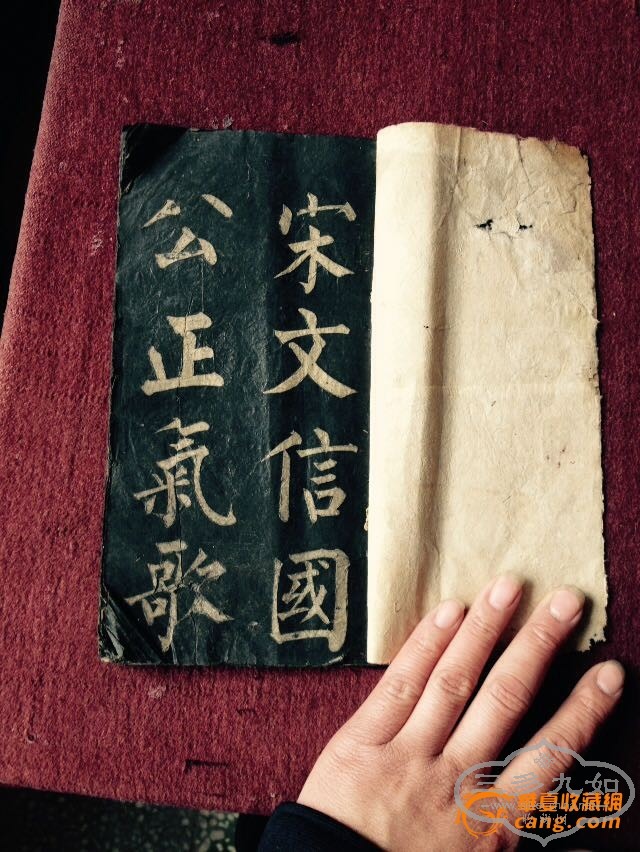 宋文信國
公正氣歌
華夏收藏網
cang.com